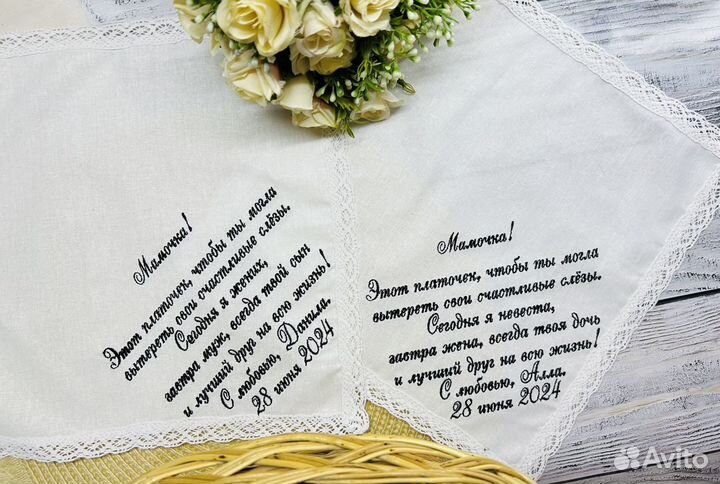 Мамочка!
Этот платочек, чтобы ты могла
вытереть свои счастливые слёзы.
Сегодня я жених,
завтра муж, всегда твой сын
и лучший друг на всю жизнь!
С любовью, Данила.
28 июня 2024
Мамочка!
Этот платочек, чтобы ты могла
вытереть свои счастливые слёзы.
Сегодня я невеста,
завтра жена, всегда твоя дочь
и лучший друг на всю жизнь!
С любовью, Алла.
28 июня 2024
Avito